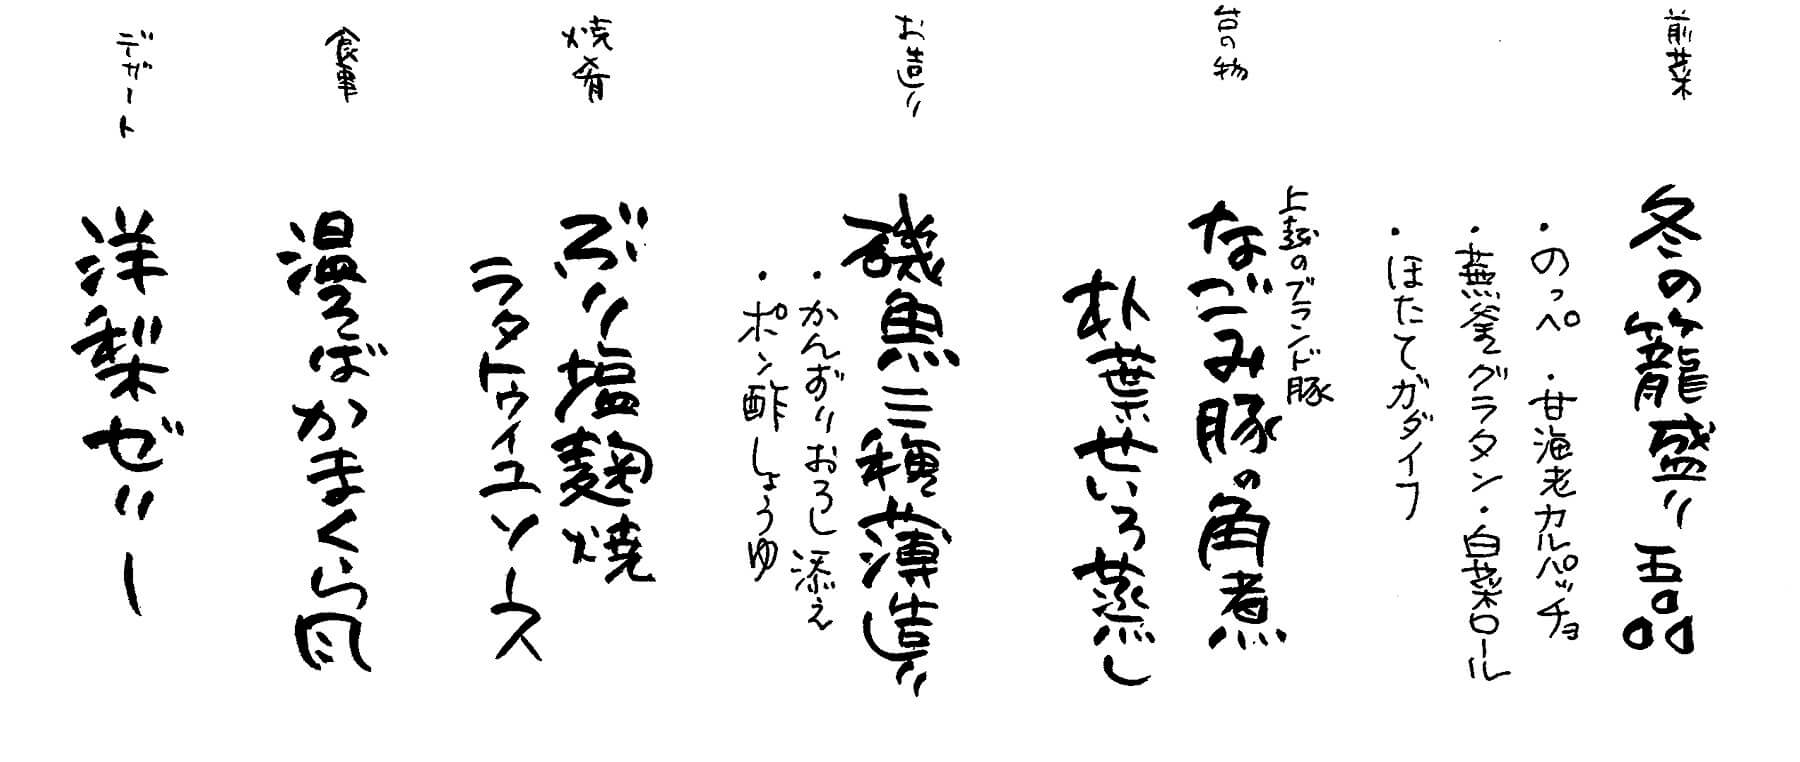 前菜
冬の籠盛り五品
・のっぺ ・甘海老カルパッチョ
・蕪釜グラタン・白菜ロール
・ほたてカダイフ
台の物
上越のブランド豚
なごみ豚の角煮
朴葉せいろ蒸し
お造り
磯魚三種薄造り
・かんずりおろし添え
・ポン酢しょうゆ
焼肴
ぶり塩麹焼
ラタトゥイユソース
食事
温そばかまくら風
デザート
洋梨ゼリー